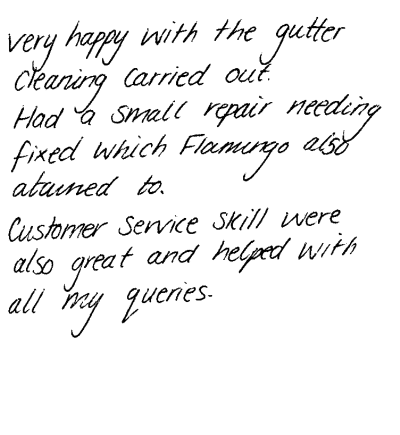 very happy with the gutter
cleaning carried out.
Had a small repair needing
fixed which Flamingo also
to.
Customer Service skill were
also great and helped with
all my queries.